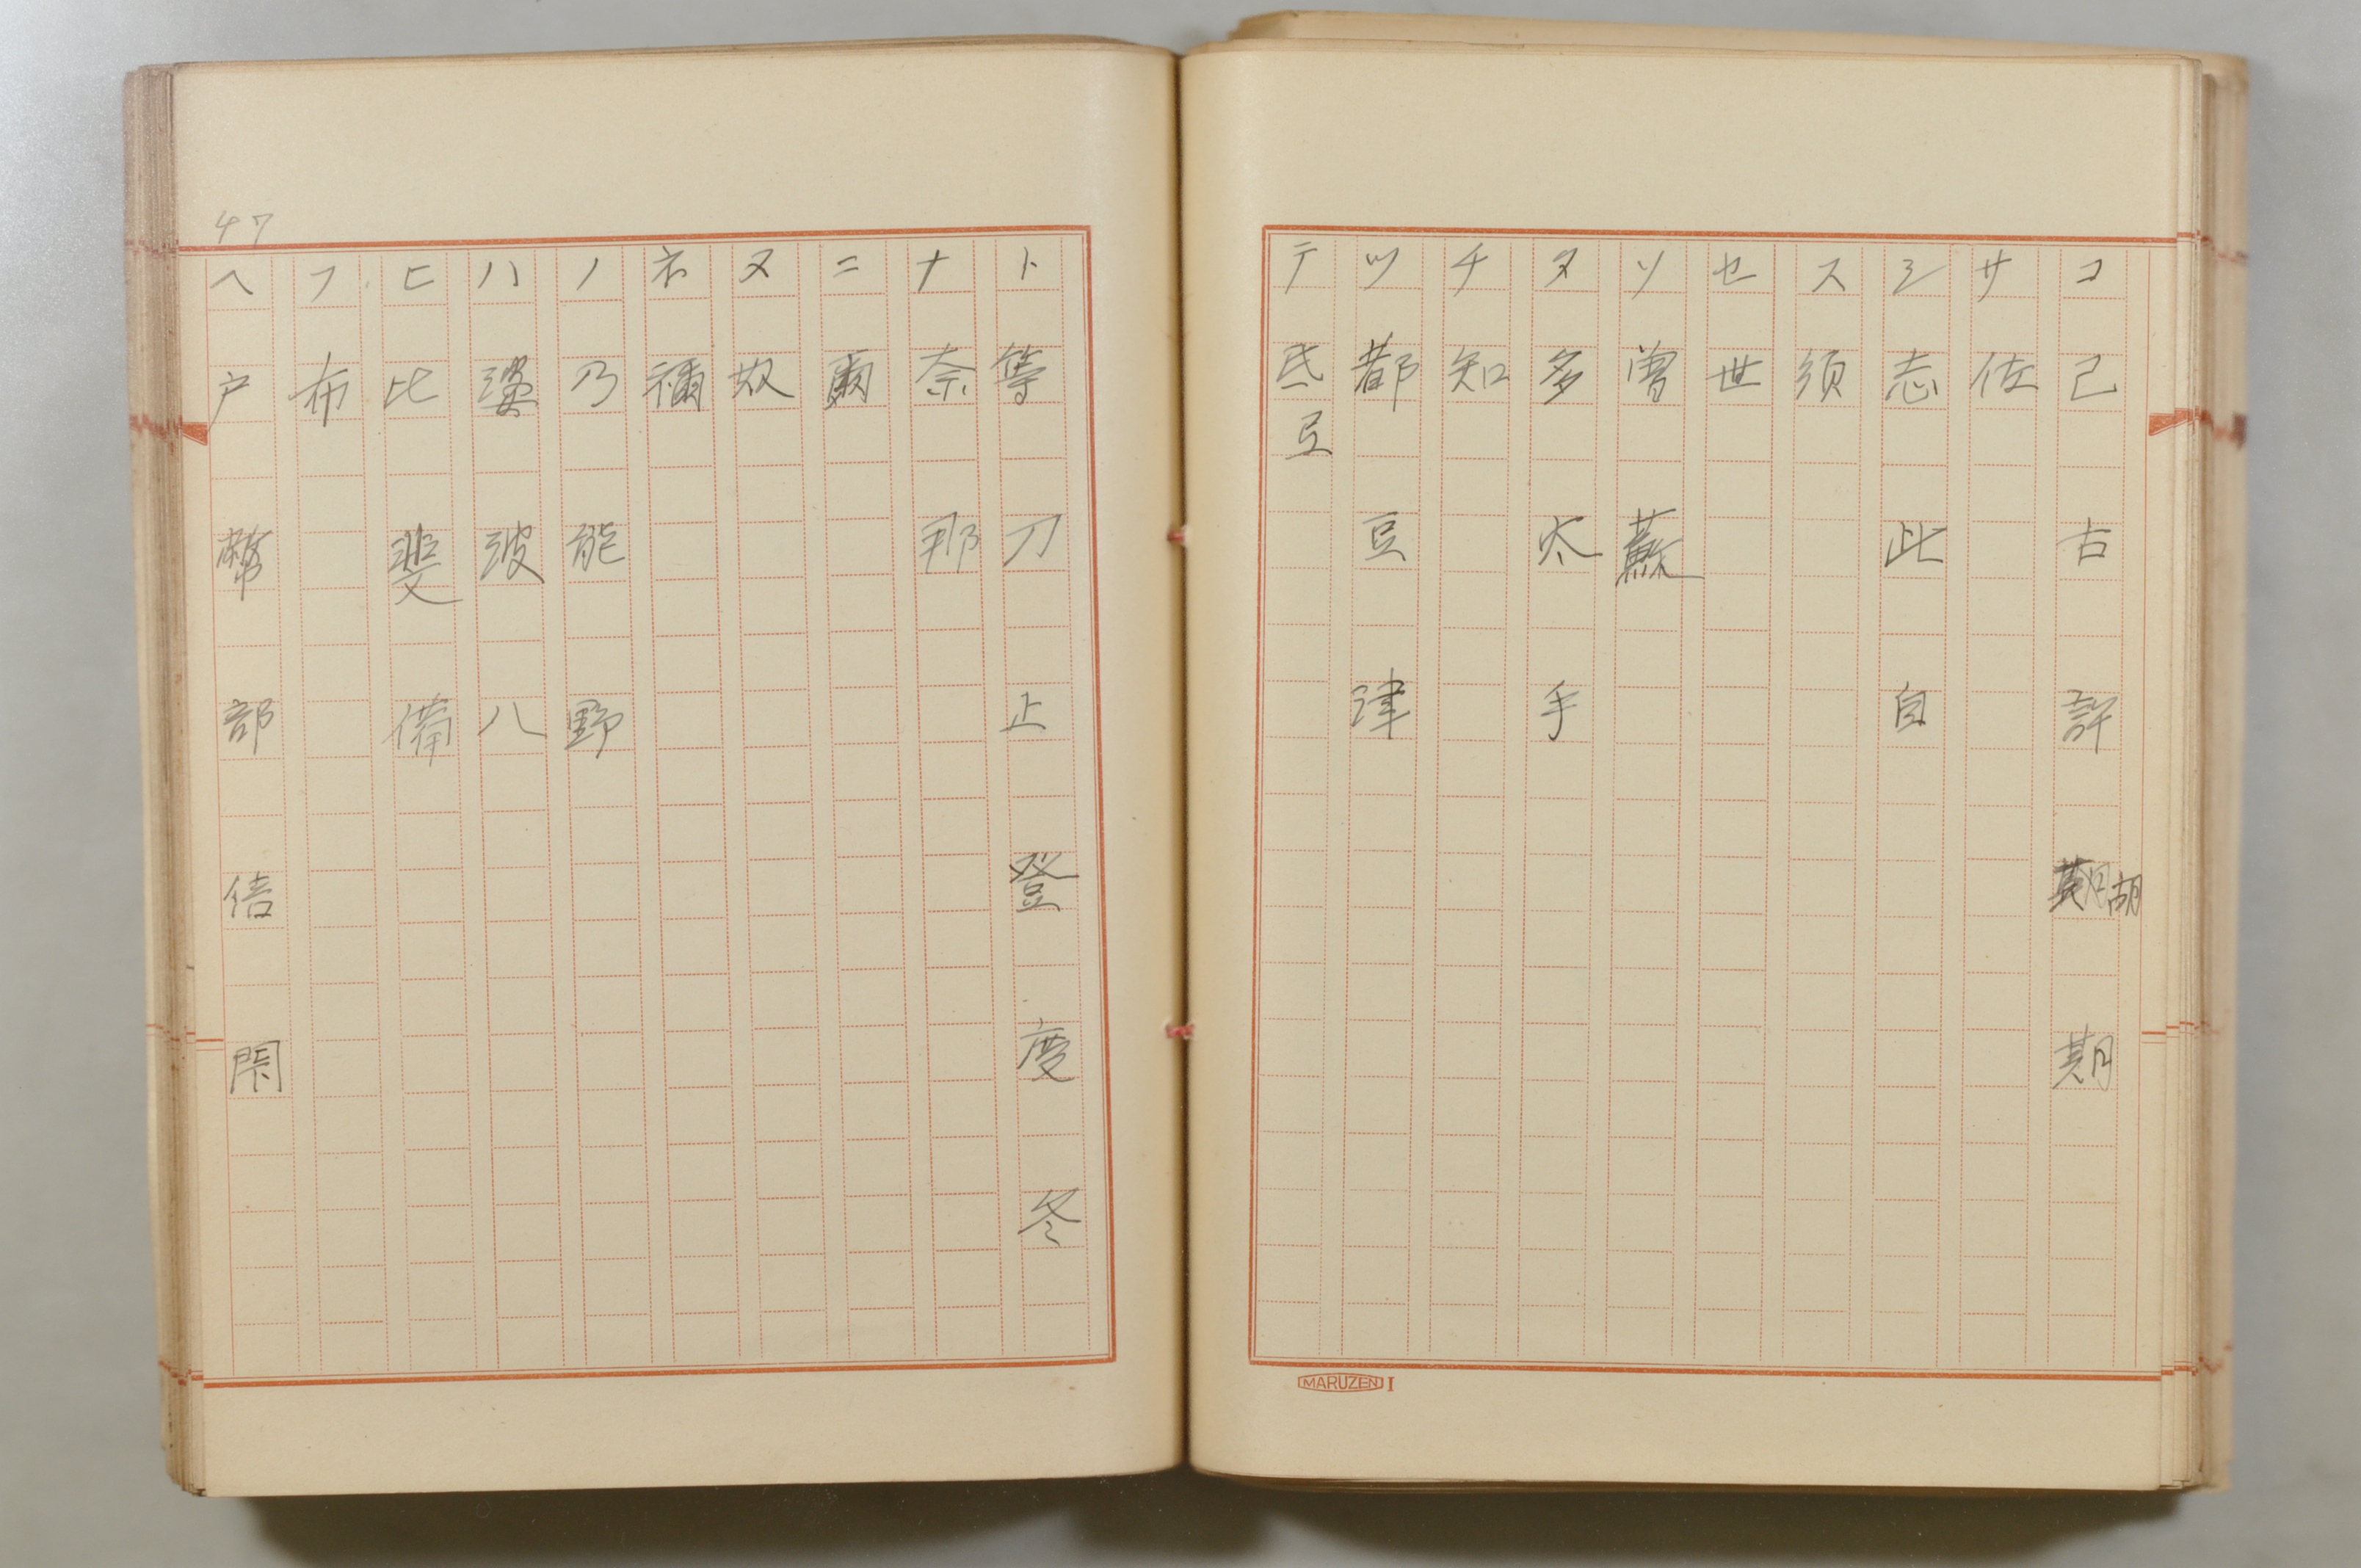 コ 己 古 許 胡 期
サ 佐
シ 志 此 自
ス 須
セ 世
ソ 曽 蘇
タ 多 太 手
チ 知
ツ 都 豆 津
テ 氐 豆
MARUZEN I
ト 等 刀 止 登 度 冬
ナ 奈 那
ニ 爾
ヌ 奴
ネ 禰
ノ 乃 能 野
ハ 婆 波 八
ヒ 比 斐 備
フ 布
ヘ 戸 幣 部 倍
47